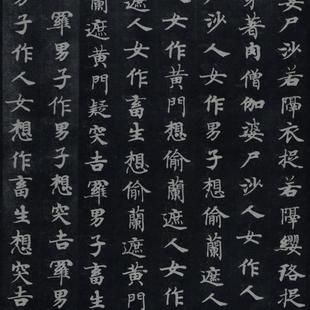 婆尸沙若隔衣捉若隔瓔珞捉
著肉僧伽婆尸沙人女作人
尸沙人女作男子想偷蘭遮人
女作黃門想偷蘭遮人女作
遮人女作畜生想偷蘭遮黃門
蘭遮黃門疑突吉羅男子畜生
羅男子作男子想突吉羅男
男子作人女想作畜生想突吉